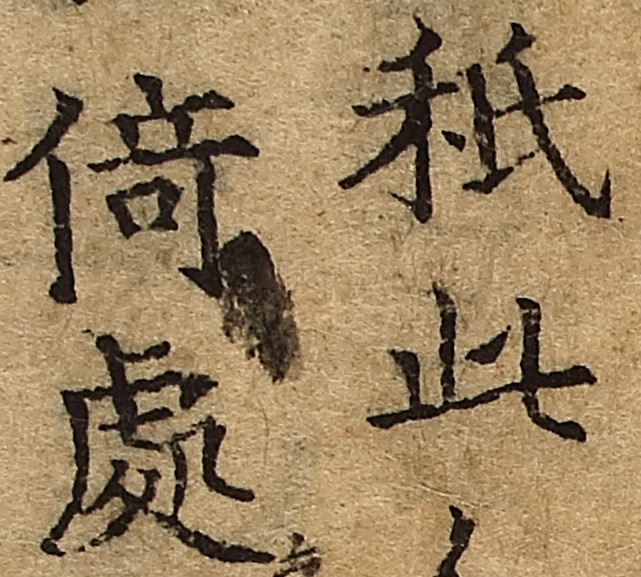 秖此
倚處